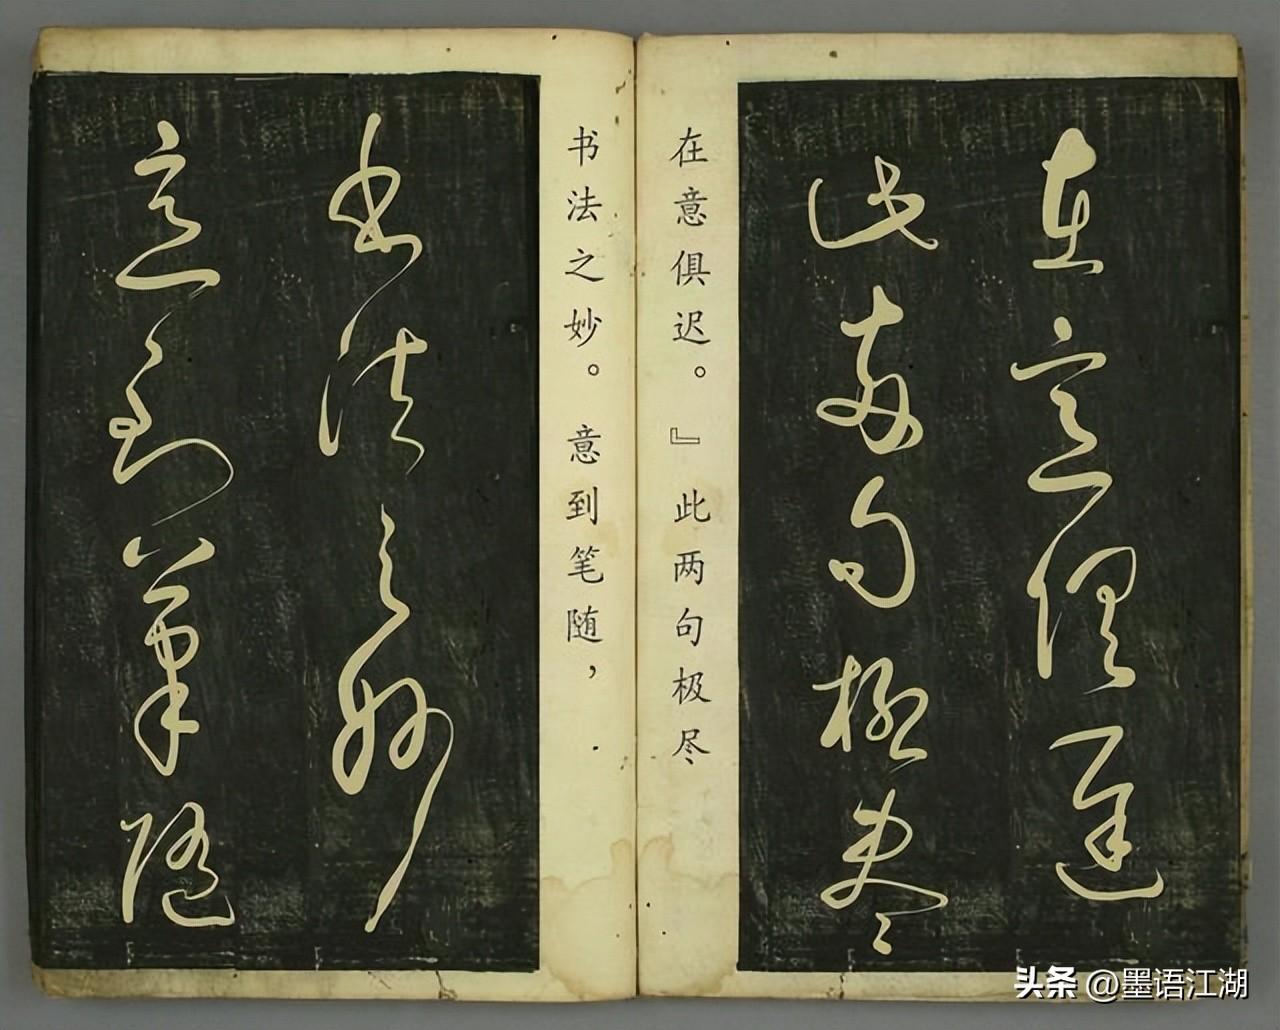 在意俱遲
此兩句極盡
在意俱迟。』此两句极尽
书法之妙。意到笔随，
書法之妙
意到筆隨
头条 @墨语江湖